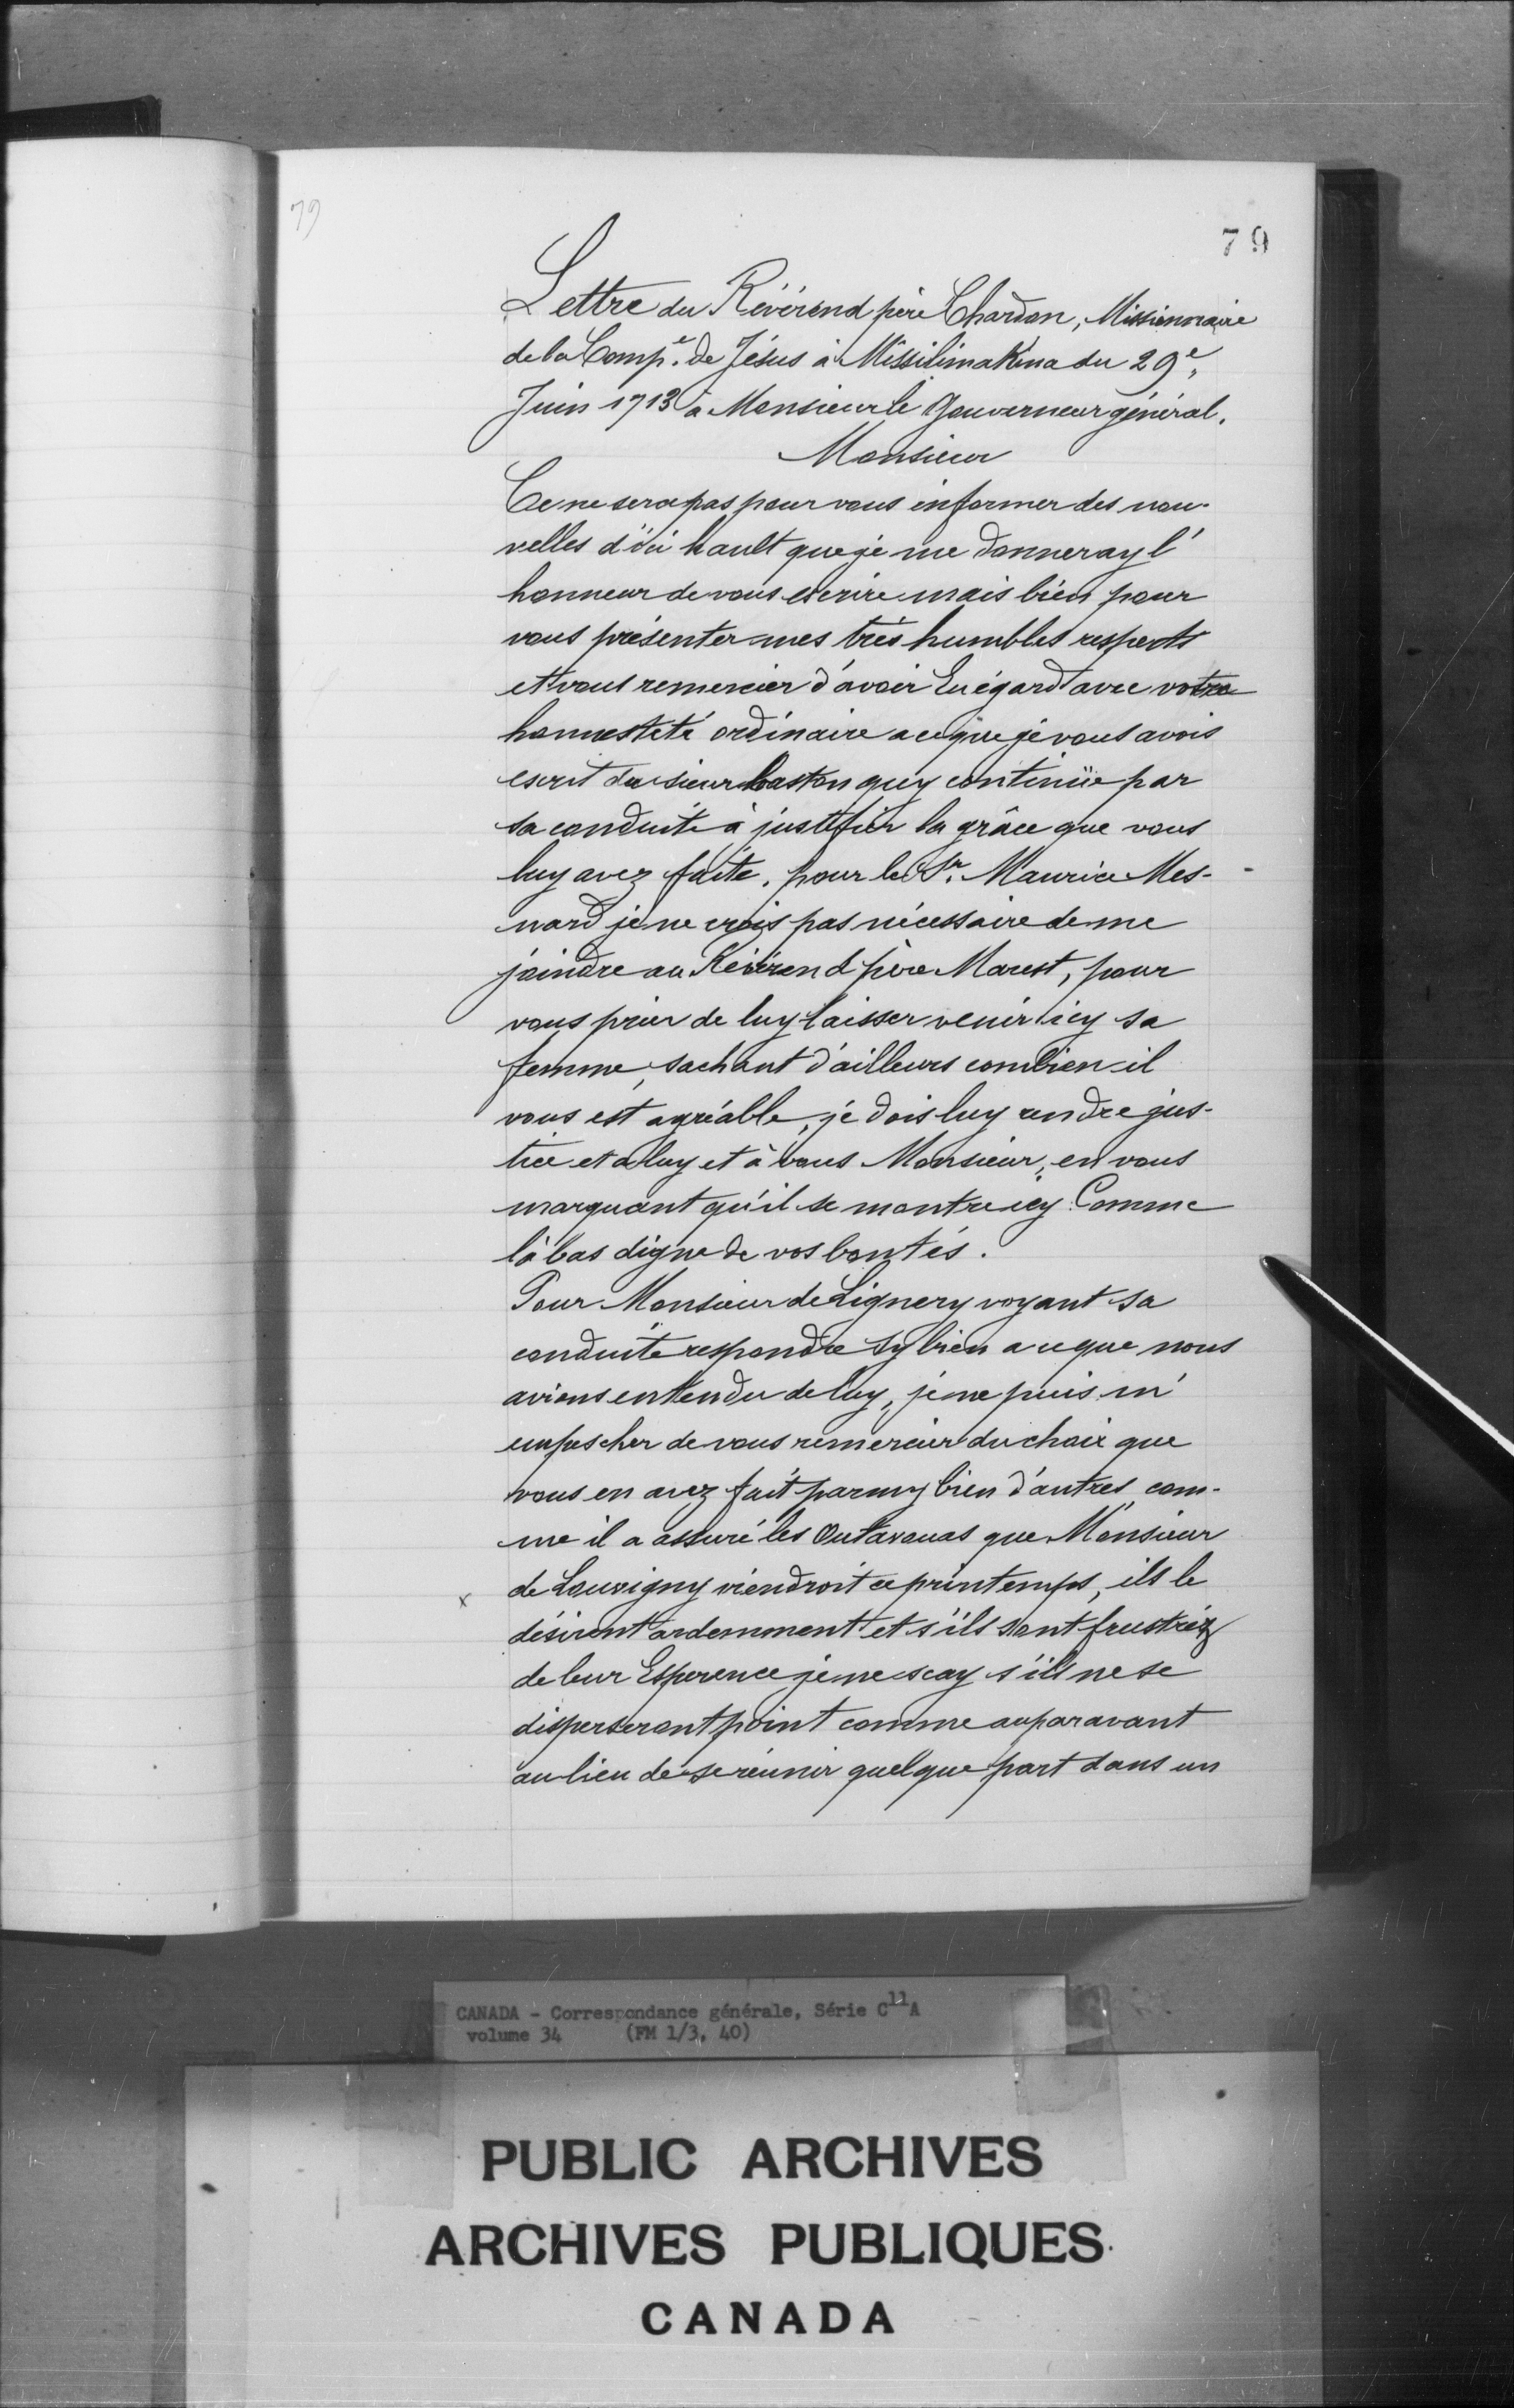 79
79
Lettre du Révérend père Chardon, Missionnaire
de la Compe. de Jésus à Missilimakina du 29e
Juin 1713 à Monsieur le Gouverneur général.
Monsieur
Ce ne sera pas pour vous informer des nou-
velles d'ici hault que je me donneray l'
honneur de vous escrire mais bien pour
vous présenter mes très humbles respects
et vous remercier d'avoir Eu égard avec votre
honnesteté ordinaire a ce que je vous avois
escrit du sieur baston quy continüe par
sa conduite à justifier la grâce que vous
luy avez faite. pour le Sr. Maurice Mes-
nard je ne crois pas nécessaire de me
joindre au Révérend père Marest, pour
vous prier de luy laisser venir icy sa
femme, sachant d'ailleurs combien il
vous est agréable, je dois luy rendre jus-
tice et a luy et à vous Monsieur, en vous
marquant qu'il se montre icy Comme
là bas digne de vos bontés.
Pour Monsieur de Lignery voyant sa
conduite respondre sy bien a ce que nous
avions entendu de luy, je ne puis m'
empescher de vous remercier du choix que
vous en avez fait parmy bien d'autres com-
me il a assuré les Outavouas que Monsieur
x de Louvigny viendroit ce printemps, ils le
désirent ardemment et s'ils sont frustréz
de leur Esperence je ne scay s'ils ne se
disperseront point comme auparavant
au lieu de se réunir quelque part dans un
CANADA - Correspondance générale, Série C11A
volume 34 (FM 1/3, 40)
PUBLIC ARCHIVES
ARCHIVES PUBLIQUES
CANADA